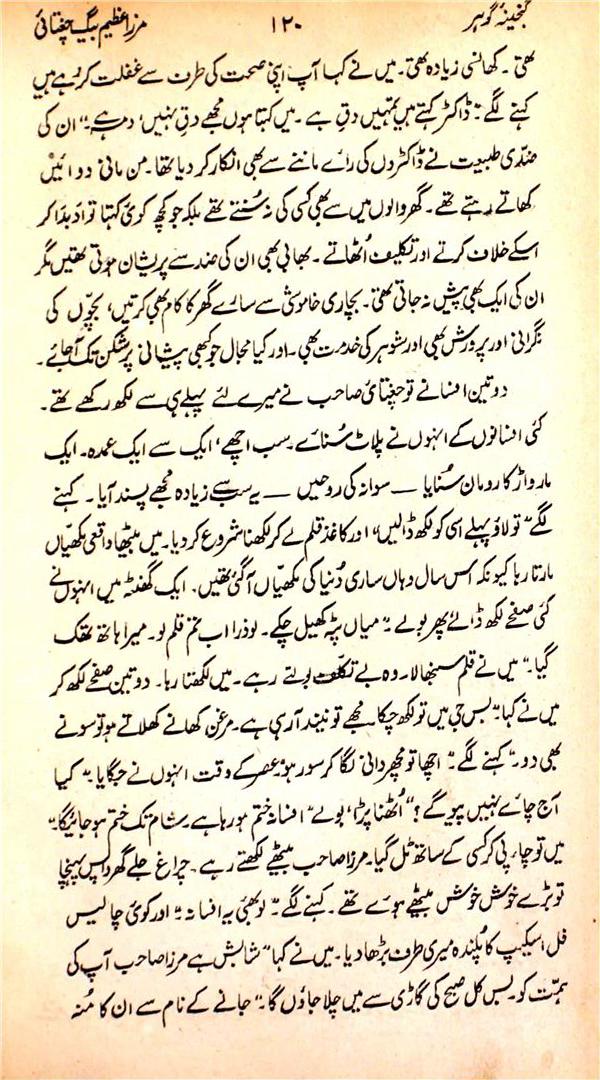 گنجینۂ گوہر ۱۲۰ مرزا عظیم بیگ چغتائی
تھی۔ کھانسی زیادہ تھی۔ میں نے کہا آپ اپنی صحت کی طرف سے غفلت کر رہے ہیں
کہنے لگے۔ "ڈاکٹر کہتے ہیں تمہیں دق ہے۔ میں کہتا ہوں مجھے دق نہیں، دمہ ہے۔" ان کی
ضدی طبیعت نے ڈاکٹروں کی رائے ماننے سے بھی انکار کر دیا تھا۔ من مانی دوائیں
کھاتے رہتے تھے۔ گھر والوں میں سے بھی کسی کی نہ سُنتے تھے بلکہ جو کچھ کوئی کہتا تو اَدبدا کر
اسکے خلاف کرتے اور تکلیف اُٹھاتے۔ بھابی بھی ان کی ضد سے پریشان ہوتی تھیں مگر
ان کی ایک بھی پیش نہ جاتی تھی۔ بچاری خاموشی سے سارے گھر کا کام بھی کرتیں، بچّوں کی
نگرانی اور پرورش بھی اور شوہر کی خدمت بھی۔ اور کیا مجال جو کبھی پیشانی پر شکن تک آجائے۔
دو تین افسانے تو چغتائی صاحب نے میرے لئے پہلے ہی سے لکھ رکھے تھے۔
کئی افسانوں کے انہوں نے پلاٹ سُنائے۔ سب اچھے، ایک سے ایک عمدہ۔ ایک
مارواڑ کا رومان سُنایا — سوانہ کی روحیں — یہ سب سے زیادہ مجھے پسند آیا۔ کہنے
لگے "تو لاؤ پہلے اسی کو لکھ ڈالیں" اور کاغذ قلم لے کر لکھنا شروع کر دیا۔ میں بیٹھا واقعی مکھیّاں
مارتا رہا کیونکہ اس سال وہاں ساری دُنیا کی مکھیّاں آگئی تھیں۔ ایک گھنٹہ میں انہوں نے
کئی صفحے لکھ ڈالے پھر بولے۔ "میاں یہ کھیل چکے۔ لو ذرا اب تم قلم لو۔ میرا ہاتھ تھک
گیا۔" میں نے قلم سنبھالا۔ وہ بے تکلّف بولتے رہے۔ میں لکھتا رہا۔ دو تین صفحے لکھ کر
میں نے کہا۔ "بس جی میں تو لکھ چکا۔ مجھے تو نیند آرہی ہے۔ مرغن کھانے کھلاتے ہو تو سونے
بھی دو۔" کہنے لگے۔ "اچھا تو مچھر دانی لگا کر سو رہو۔" عصر کے وقت انہوں نے جگایا۔ "کیا
آج چائے نہیں پیو گے؟" اُٹھنا پڑا، بولے "افسانہ ختم ہو رہا ہے۔ شام تک ختم ہو جائیگا۔"
میں تو چاء پی کر کسی کے ساتھ ٹل گیا۔ مرزا صاحب بیٹھے لکھتے رہے۔ چراغ جلے گھر واپس پہنچا
تو بڑے خوش خوش بیٹھے ہوئے تھے۔ کہنے لگے۔ "لو بھئی یہ افسانہ" اور کوئی چالیس
فل اسکیپ کا پلندہ میری طرف بڑھا دیا۔ میں نے کہا "شاباش ہے مرزا صاحب آپ کی
ہمّت کو۔ بس کل صبح کی گاڑی سے میں چلا جاؤں گا۔" جانے کے نام سے ان کا مُنہ